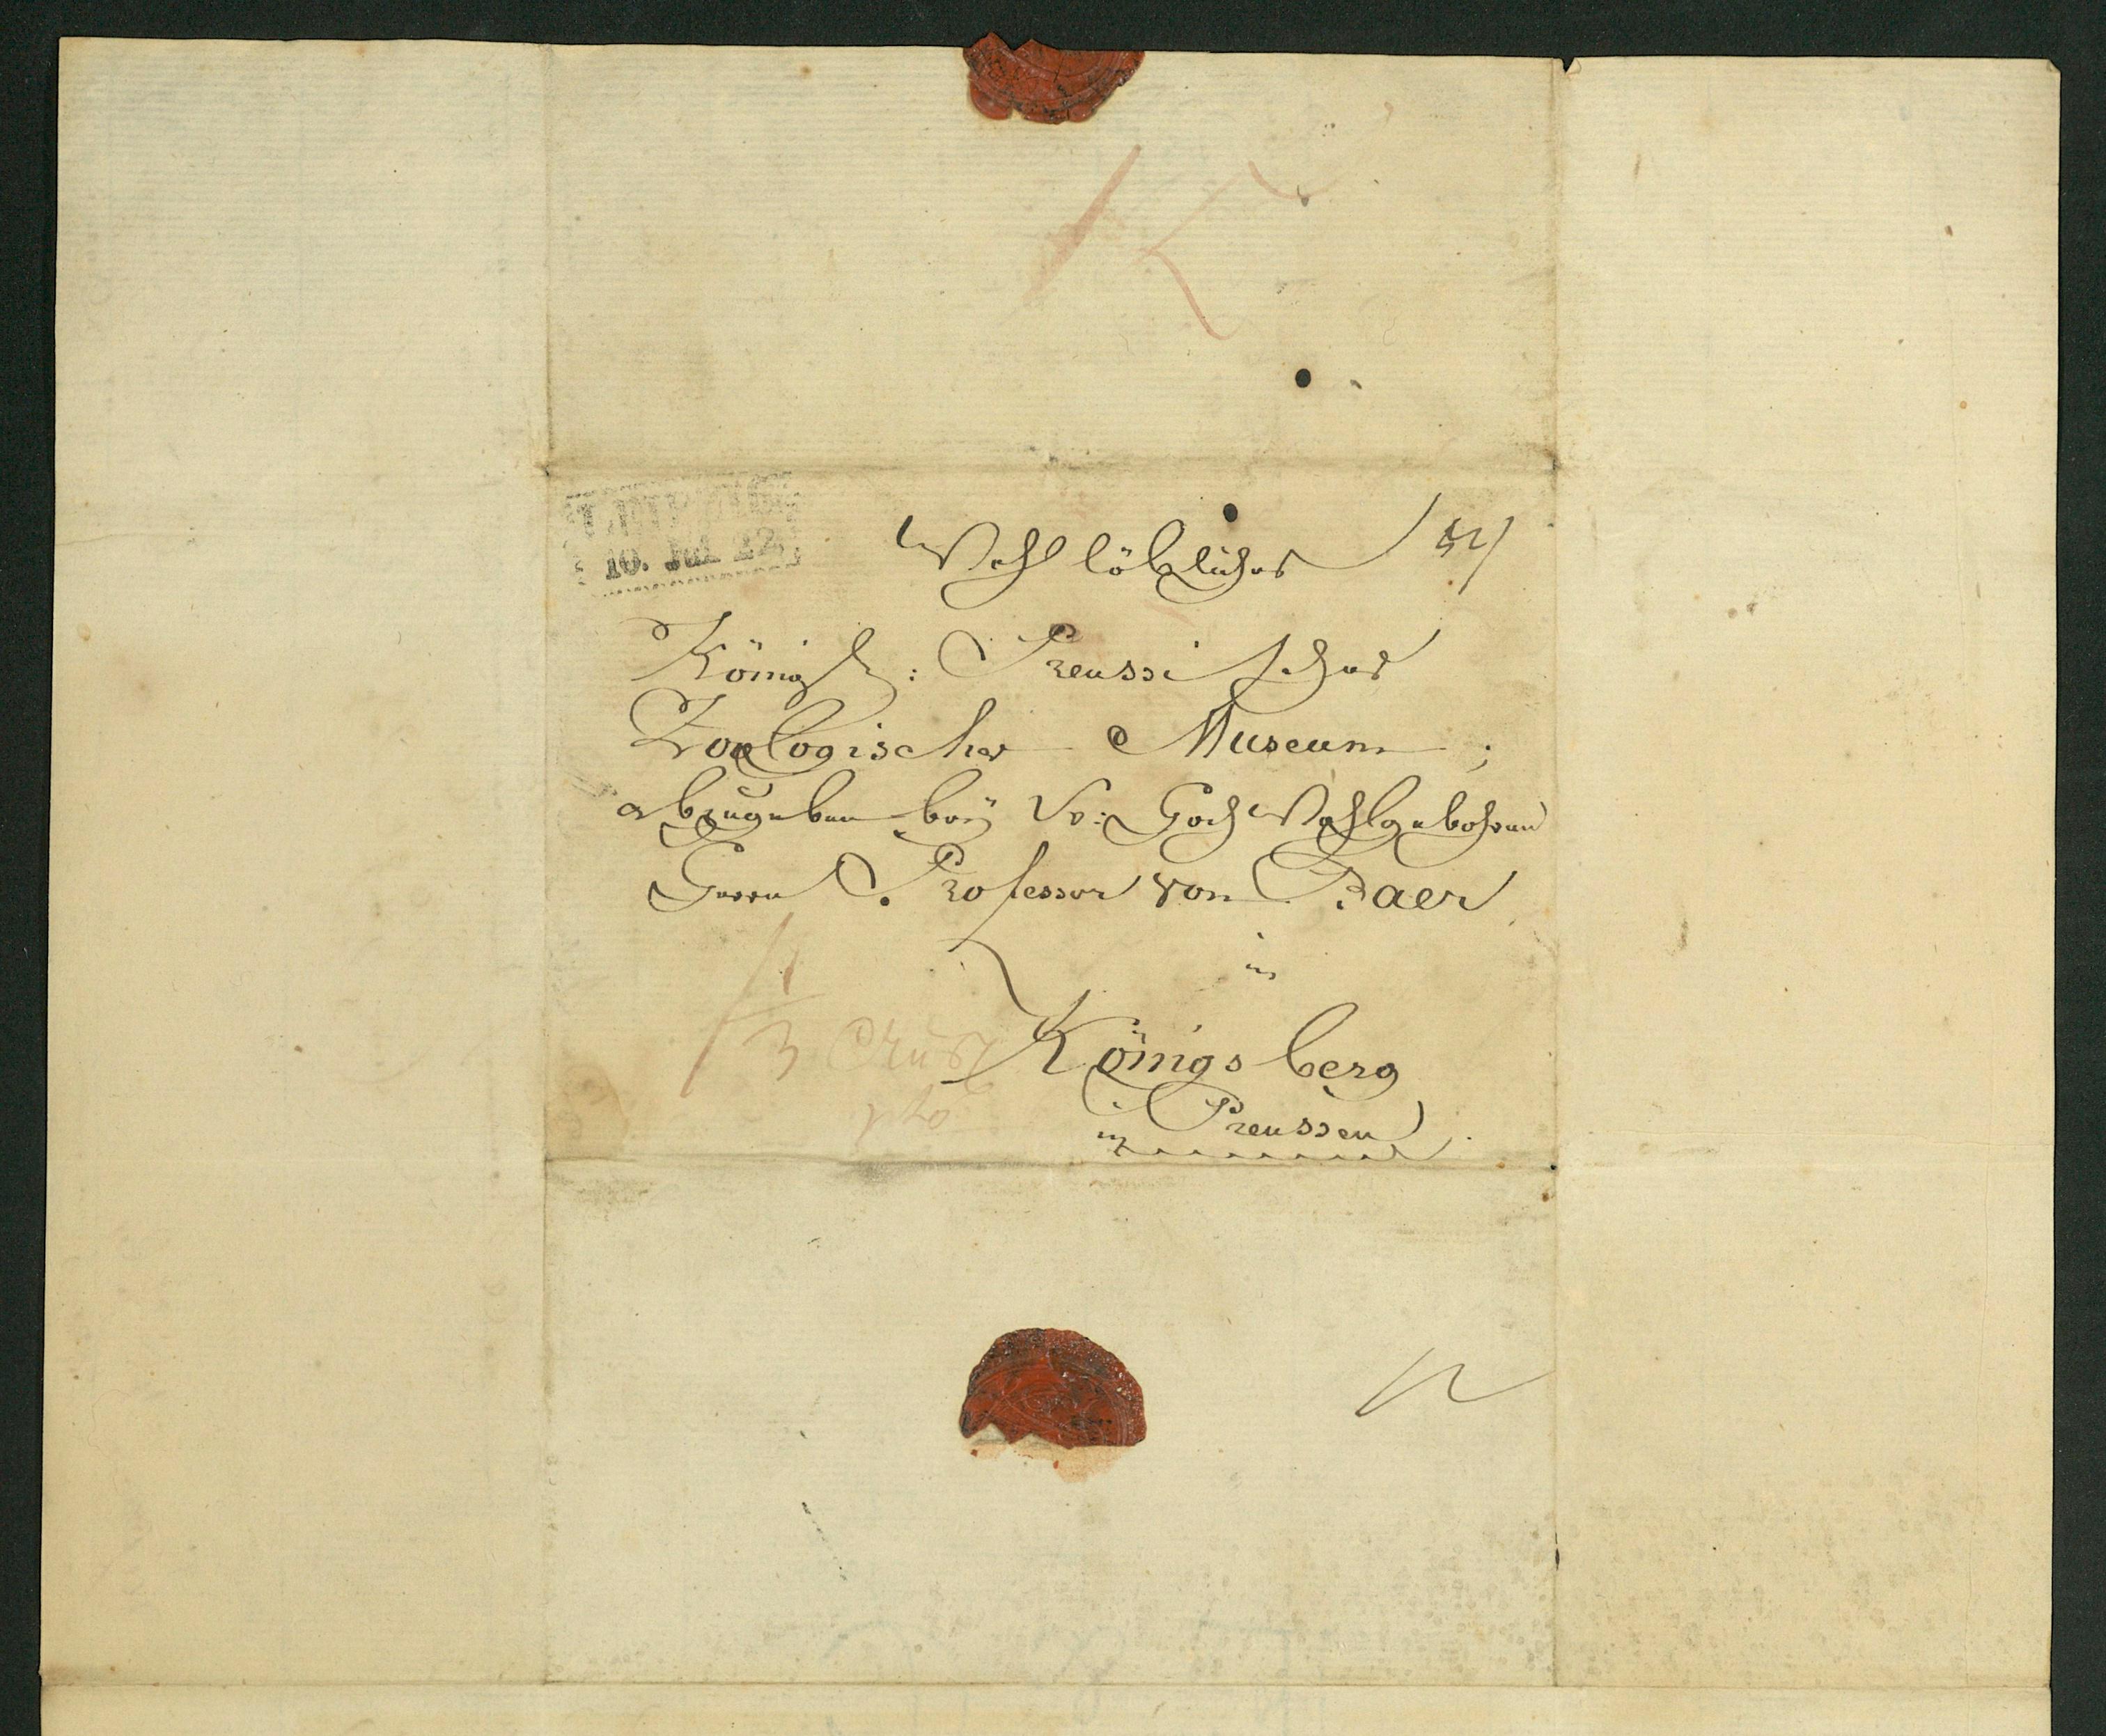 LEIPZIG
10. Jul 22
Wohllöbliches
Königl: Preussisches
Zoologisches Museum;
abzugeben beÿ Sr: Hoch Wohlgebohren
Herrn Professor von Baer
in
Königsberg
in Preussen.